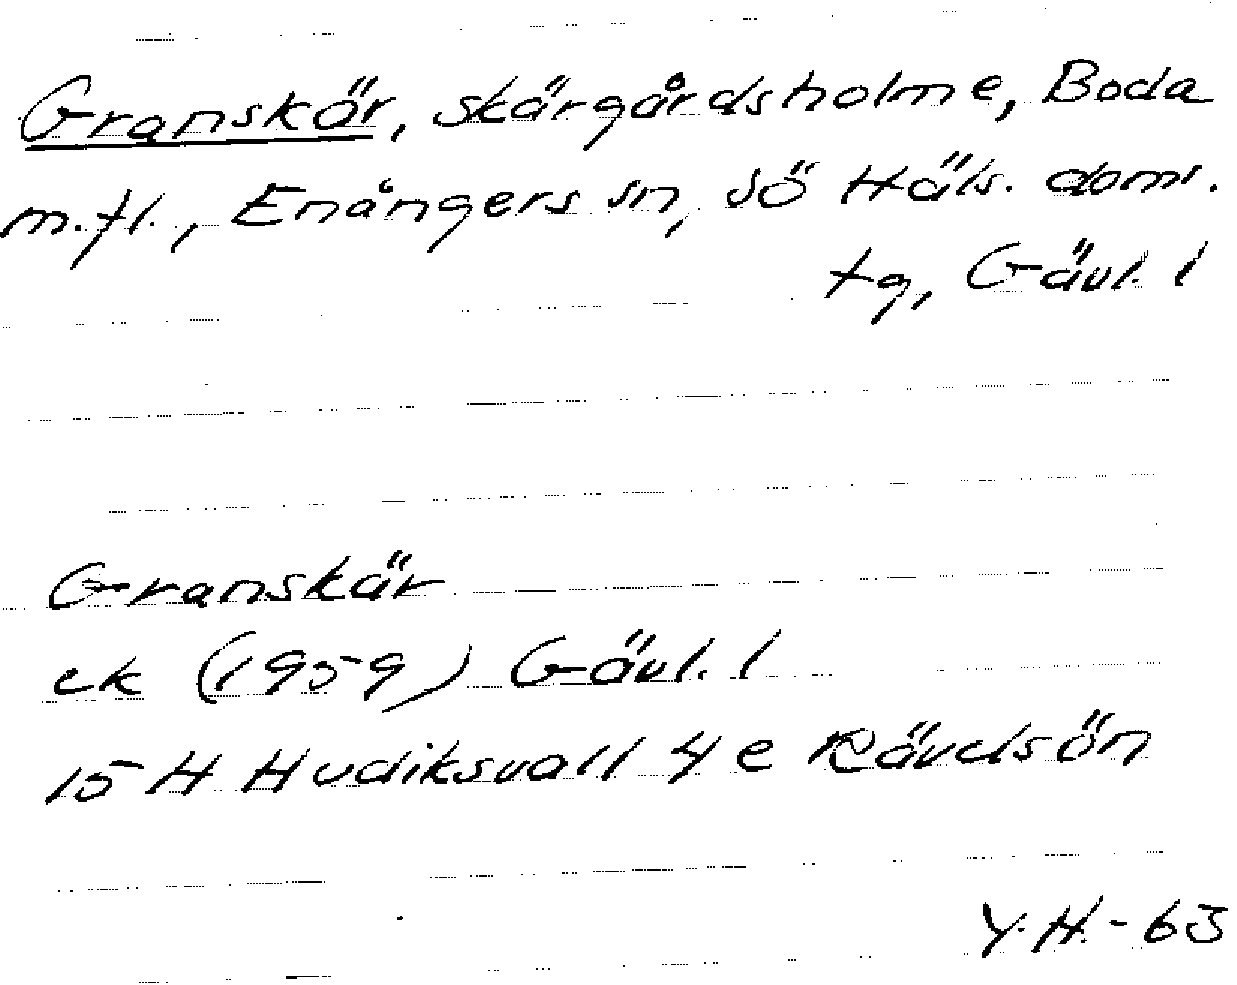 Granskär, skärgårdsholme, Boda
m.fl., Enångers sn, Sö Häls. doms.
tg, Gävl. l
Granskär
ek (1959) Gävl. l
15 H Hudiksvall 4 e Rävdsön
Y.H.-63